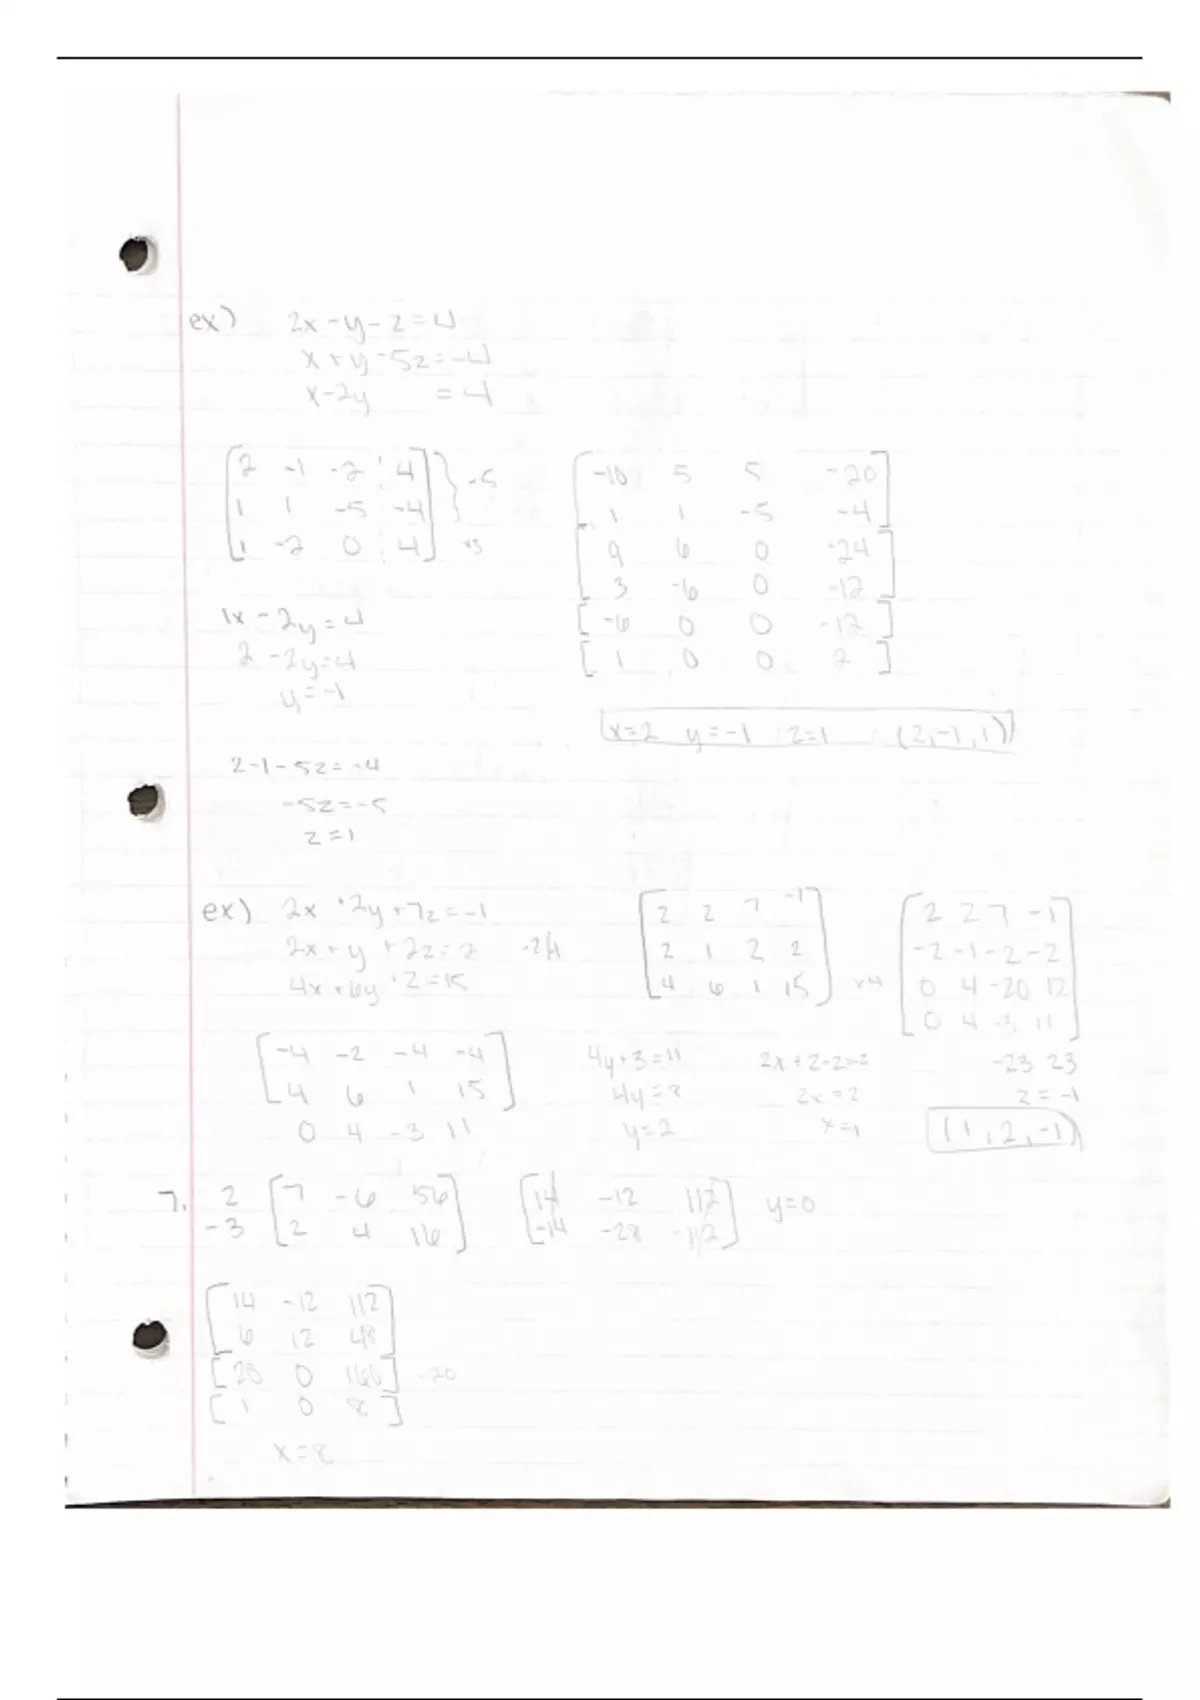 ex) 2x - y - z = 4
x + y - 5z = -4
x - 2y = 4
[2 -1 -2 4] } -5
[1 1 -5 -4]
[1 -2 0 4] x3
[-10 5 5 -20]
[1 1 -5 -4]
[9 6 0 -24]
[3 -6 0 -12]
[-6 0 0 -12]
[1 0 0 2]
1x - 2y = 4
2 - 2y = 4
y = -1
x=2 y=-1 z=1 (2,-1,1)
2-1-5z=-4
-5z=-5
z=1
ex) 2x + 2y + 7z = -1
2x + y + 2z = 2 -2
4x + 6y + z = 15
[2 2 7 -1]
[2 1 2 2]
[4 6 1 15] x4
[2 2 7 -1]
[-2 -1 -2 -2]
[0 4 -20 12]
[0 4 -3 11]
-23 23
z = -1
(1, 2, -1)
[-4 -2 -4 -4]
[4 6 1 15]
0 4 -3 11
4y+3=11
4y=8
y=2
2x+2-2=2
2x=2
x=1
7. 2 [7 -6 56]
-3 [2 4 16]
[14 -12 112]
[-14 -28 -112]
y=0
[14 -12 112]
[6 12 48]
[20 0 160] -20
[1 0 8]
x=8